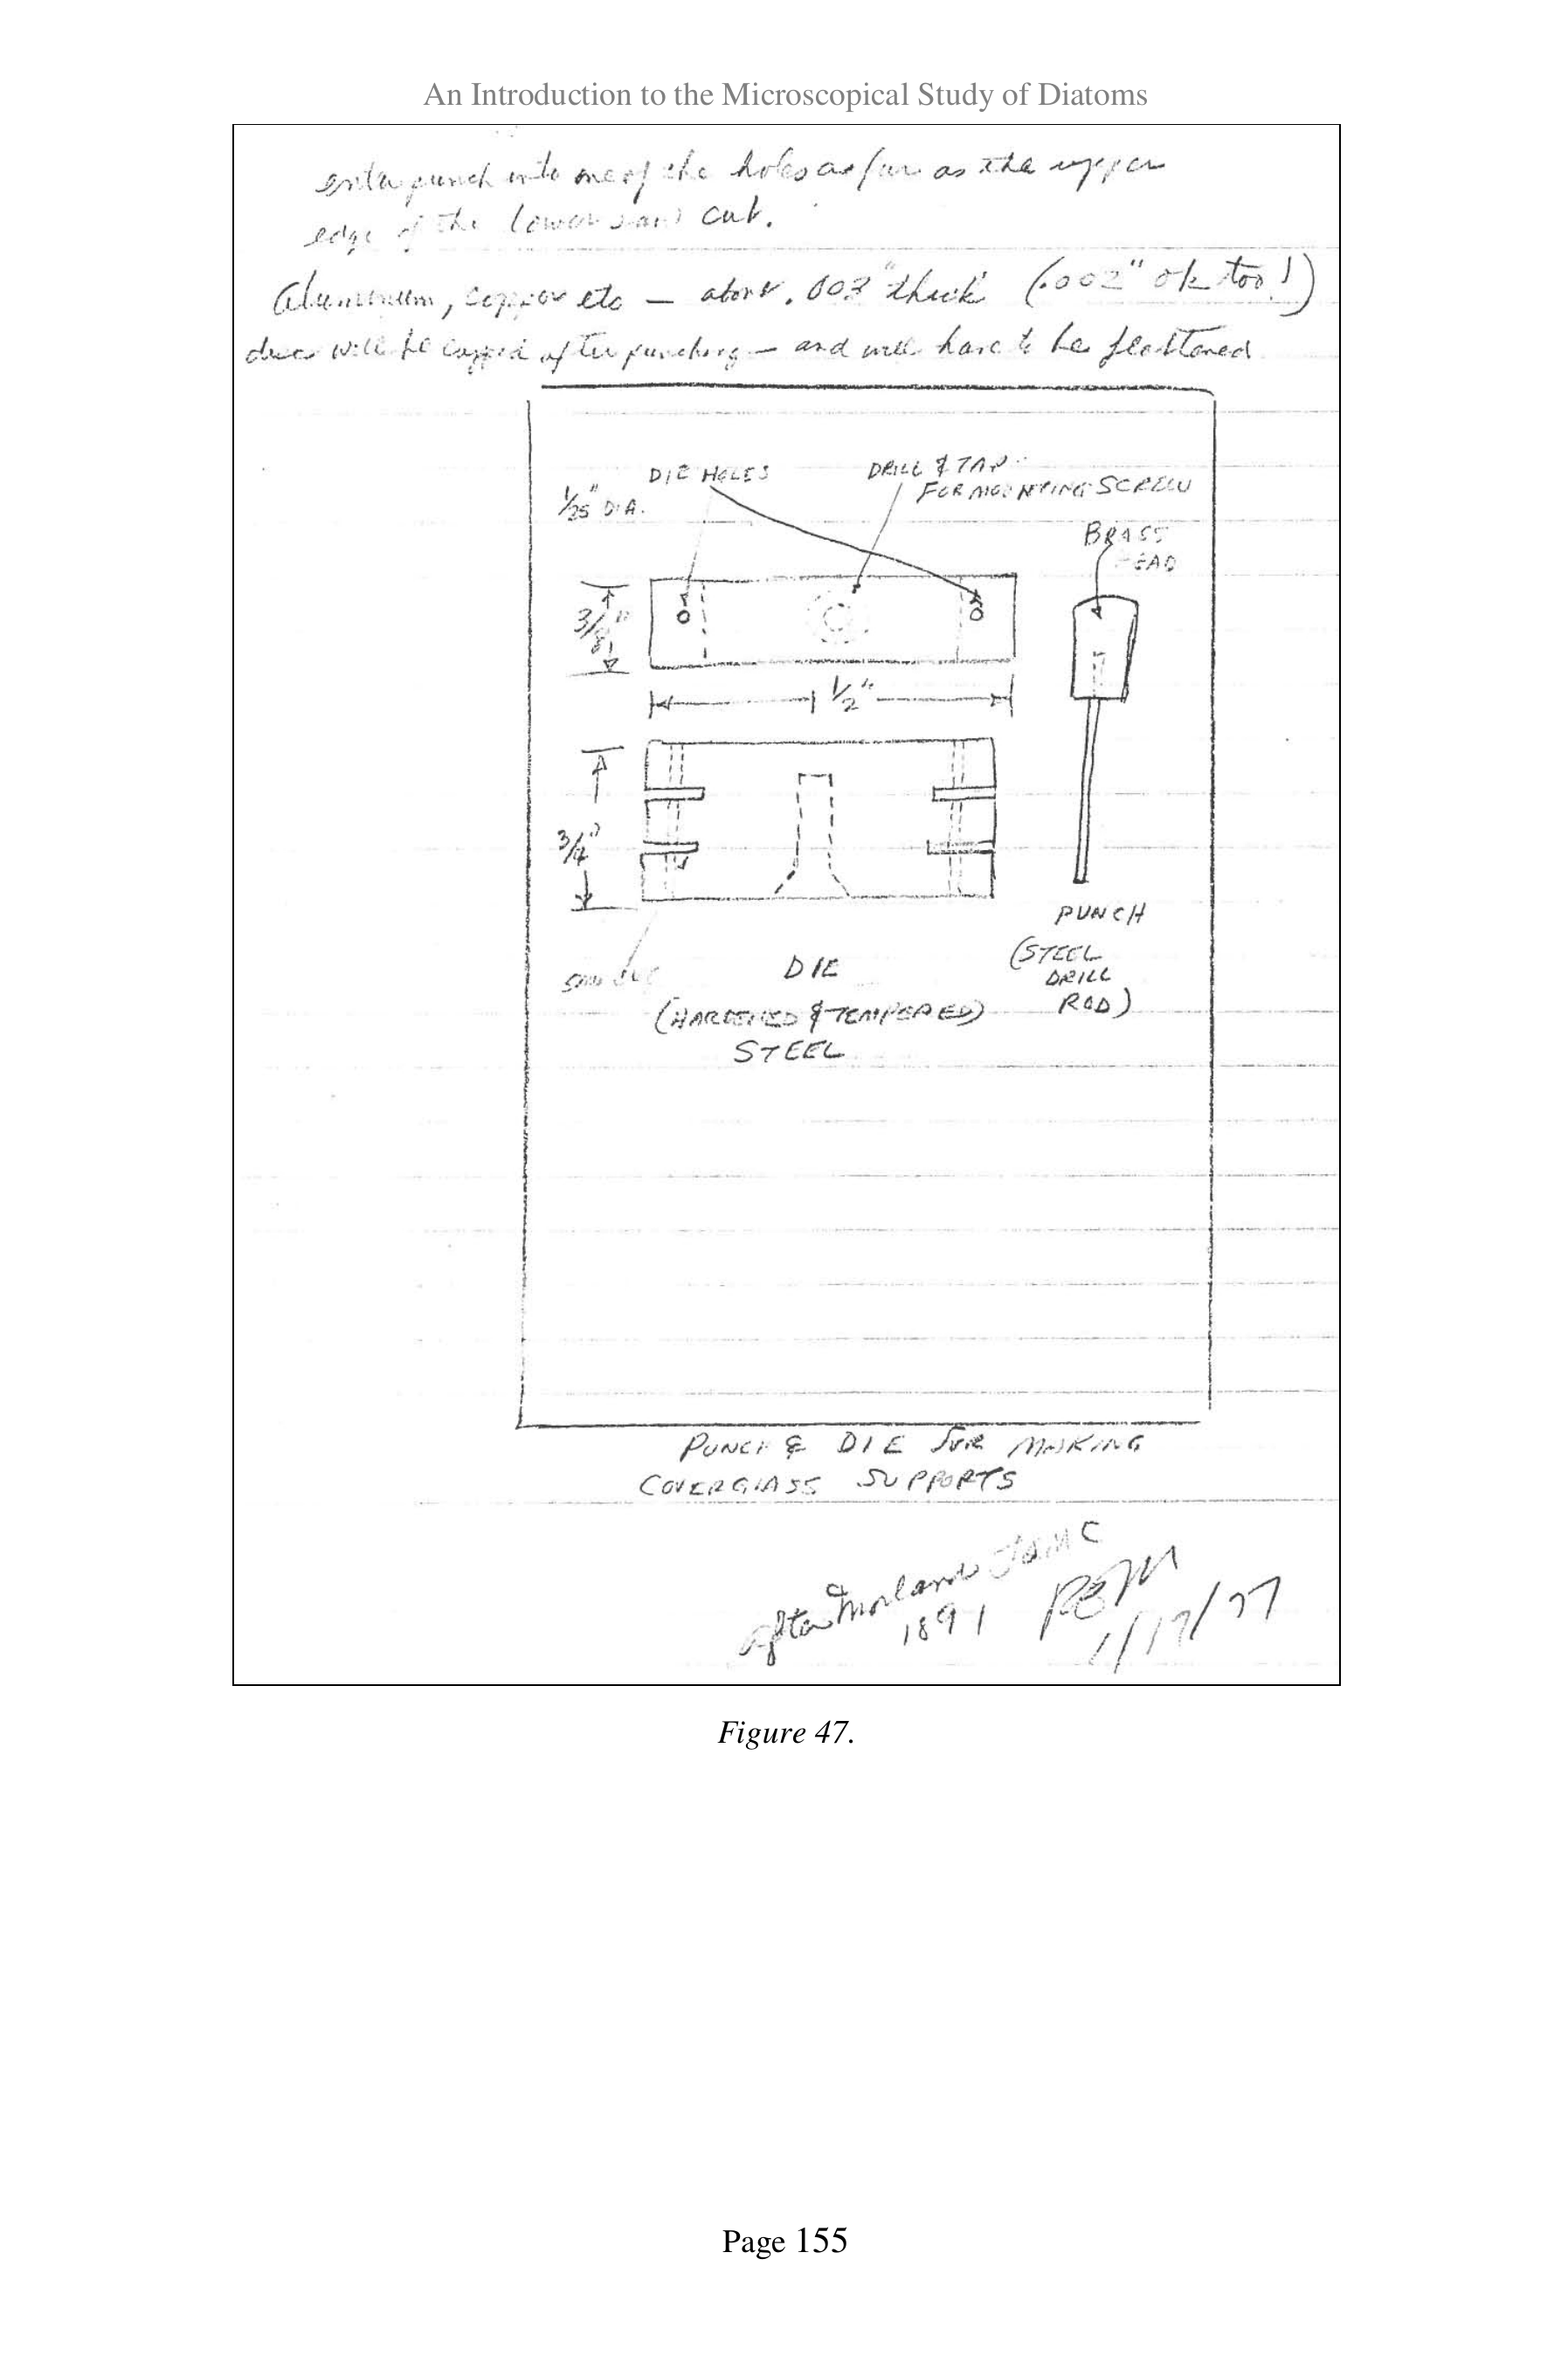 An Introduction to the Microscopical Study of Diatoms
enter punch into one of the holes as far as the upper
edge of the lower saw cut.
Aluminum, copper etc — about .003" thick (.002" ok too!)
discs will be cupped after punching — and will have to be flattened
DIE HOLES
DRILL & TAP
FOR MOUNTING SCREW
1/25" DIA.
BRASS
HEAD
3/8"
1/2"
3/4"
PUNCH
(STEEL
DRILL
ROD)
SAW
DIE
(HARDENED & TEMPERED)
STEEL
PUNCH & DIE FOR MAKING
COVERGLASS SUPPORTS
after Morland
1891
Figure 47.
Page 155